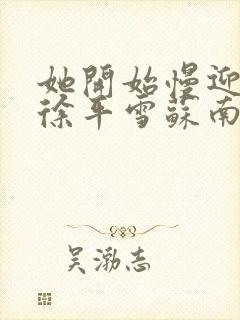 她開始慢迎
徐平雪蘇南
吴渤志